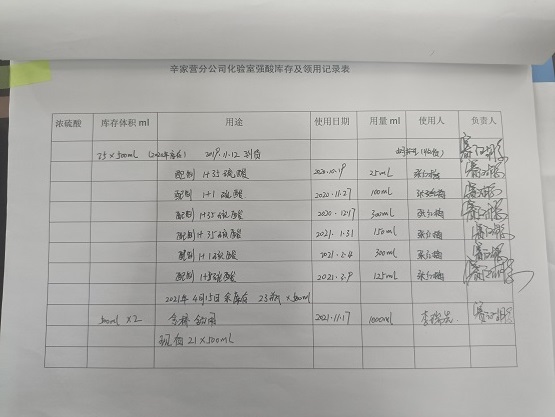 辛家营分公司化验室强酸库存及领用记录表
浓硫酸 库存体积 ml 用途 使用日期 用量 ml 使用人 负责人
25×500ml (2020年库存) 2019.11.12 到货
配制 1+35 硫酸 2020.10.19 25ml 张红梅
配制 1+1 硫酸 2020.11.27 100ml 张红梅
配制 1+35硫酸 2020.12.17 300ml 张红梅
配制 1+35硫酸 2021.1.31 150ml 张红梅
配制 1+1硫酸 2021.2.4 300ml 张红梅
配制 硫酸 2021.2.9 125ml 张红梅
2021年4月15日 库存 23瓶×500ml
500ml ×2 领用 2021.11.17 1000ml
现有21×500ml